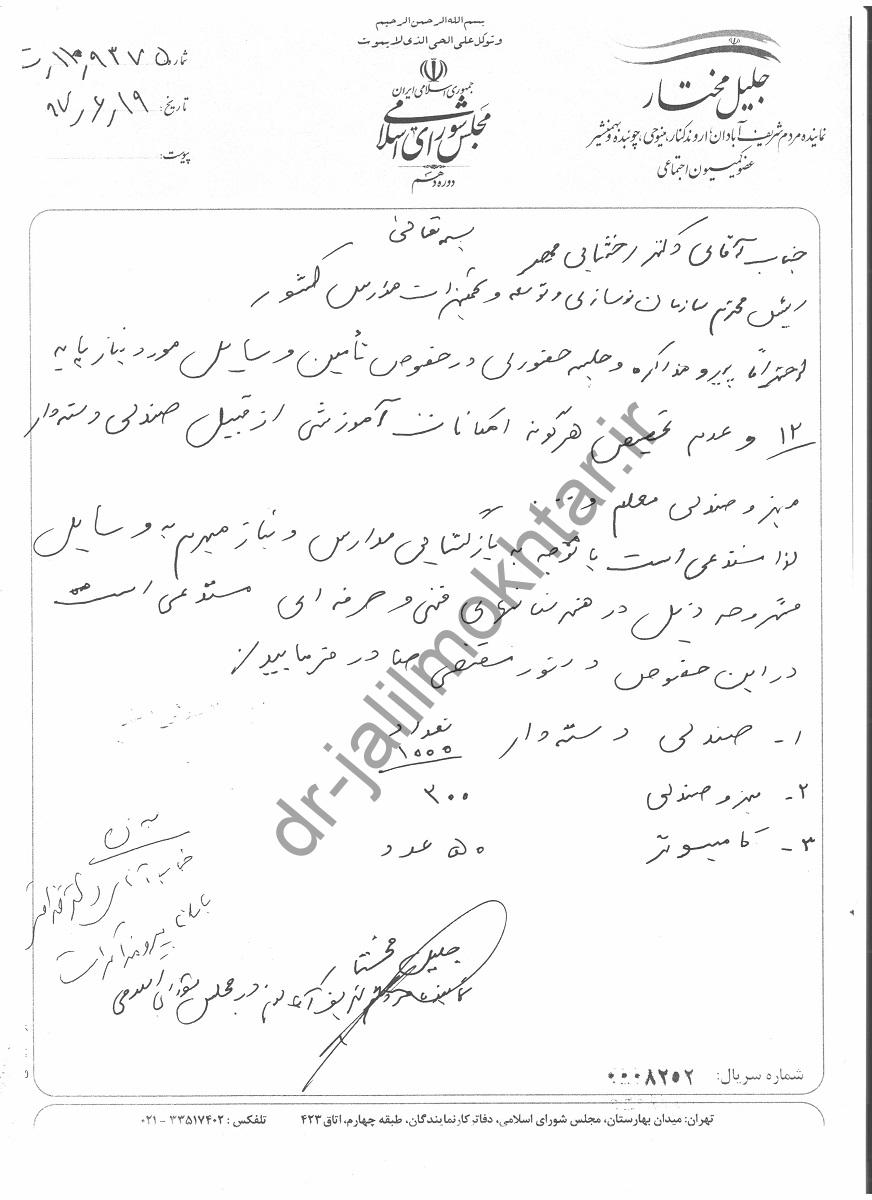 بسم الله الرحمن الرحیم
و توکل علی الحی الذی لا یموت
جمهوری اسلامی ایران
مجلس شورای اسلامی
دوره دهم
جلیل مختار
نماینده مردم شریف آبادان، اروندکنار، مینوحی، چوئبده و بهمنشیر
عضو کمیسیون اجتماعی
شماره: ۱۳۰۹۳۷۵ر ت
تاریخ: ۹۷٫۶٫۱۹
پیوست:
بسمه تعالی
جناب آقای دکتر رخشانی مهر
ریئس محترم سازمان نوسازی و توسعه و تجهیزات مدارس کشور
احتراماً پیرو مذاکره و جلسه حضوری در خصوص تأمین وسایل مورد نیاز پایه
۱۲ و عدم تخصیص هرگونه امکانات آموزشی از قبیل صندلی دسته‌دار
میز و صندلی معلم و ...
لذا مستدعی است با توجه به بازگشایی مدارس و نیاز مبرم به وسایل
مشروحه ذیل در هنرستانهای فنی و حرفه ای مستدعی است
در این خصوص دستور مقتضی صادر فرمایید/
تعداد
۱- صندلی دسته‌دار ۱۰۰۰
۲- میز و صندلی ۳۰۰
۳- کامپیوتر ۵۰ عدد
جناب آقای دکتر
با سلام پیرو مذاکرات
جلیل مختار
نماینده مردم شریف آبادان در مجلس شورای اسلامی
شماره سریال: ۰۰۰۸۲۵۲
تهران: میدان بهارستان، مجلس شورای اسلامی، دفاتر کار نمایندگان، طبقه چهارم، اتاق ۴۲۳ تلفکس: ۳۳۵۱۷۴۰۲ - ۰۲۱
dr-jalilmokhtar.ir